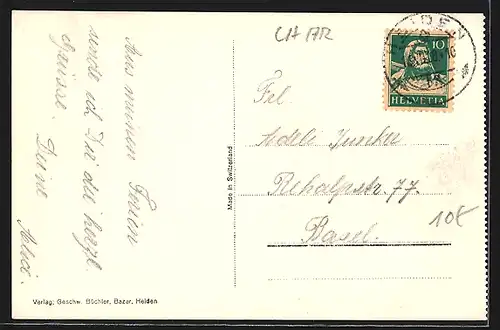 Aus meinen Ferien
sende ich Dir die herzl.
Grüsse. Deine
Made in Switzerland
Verlag: Geschw. Büchler, Bazar, Heiden
CH AR
HEIDEN
10
HELVETIA
Frl.
Adeli Junker
Rehalpstr. 77.
Basel.
10€